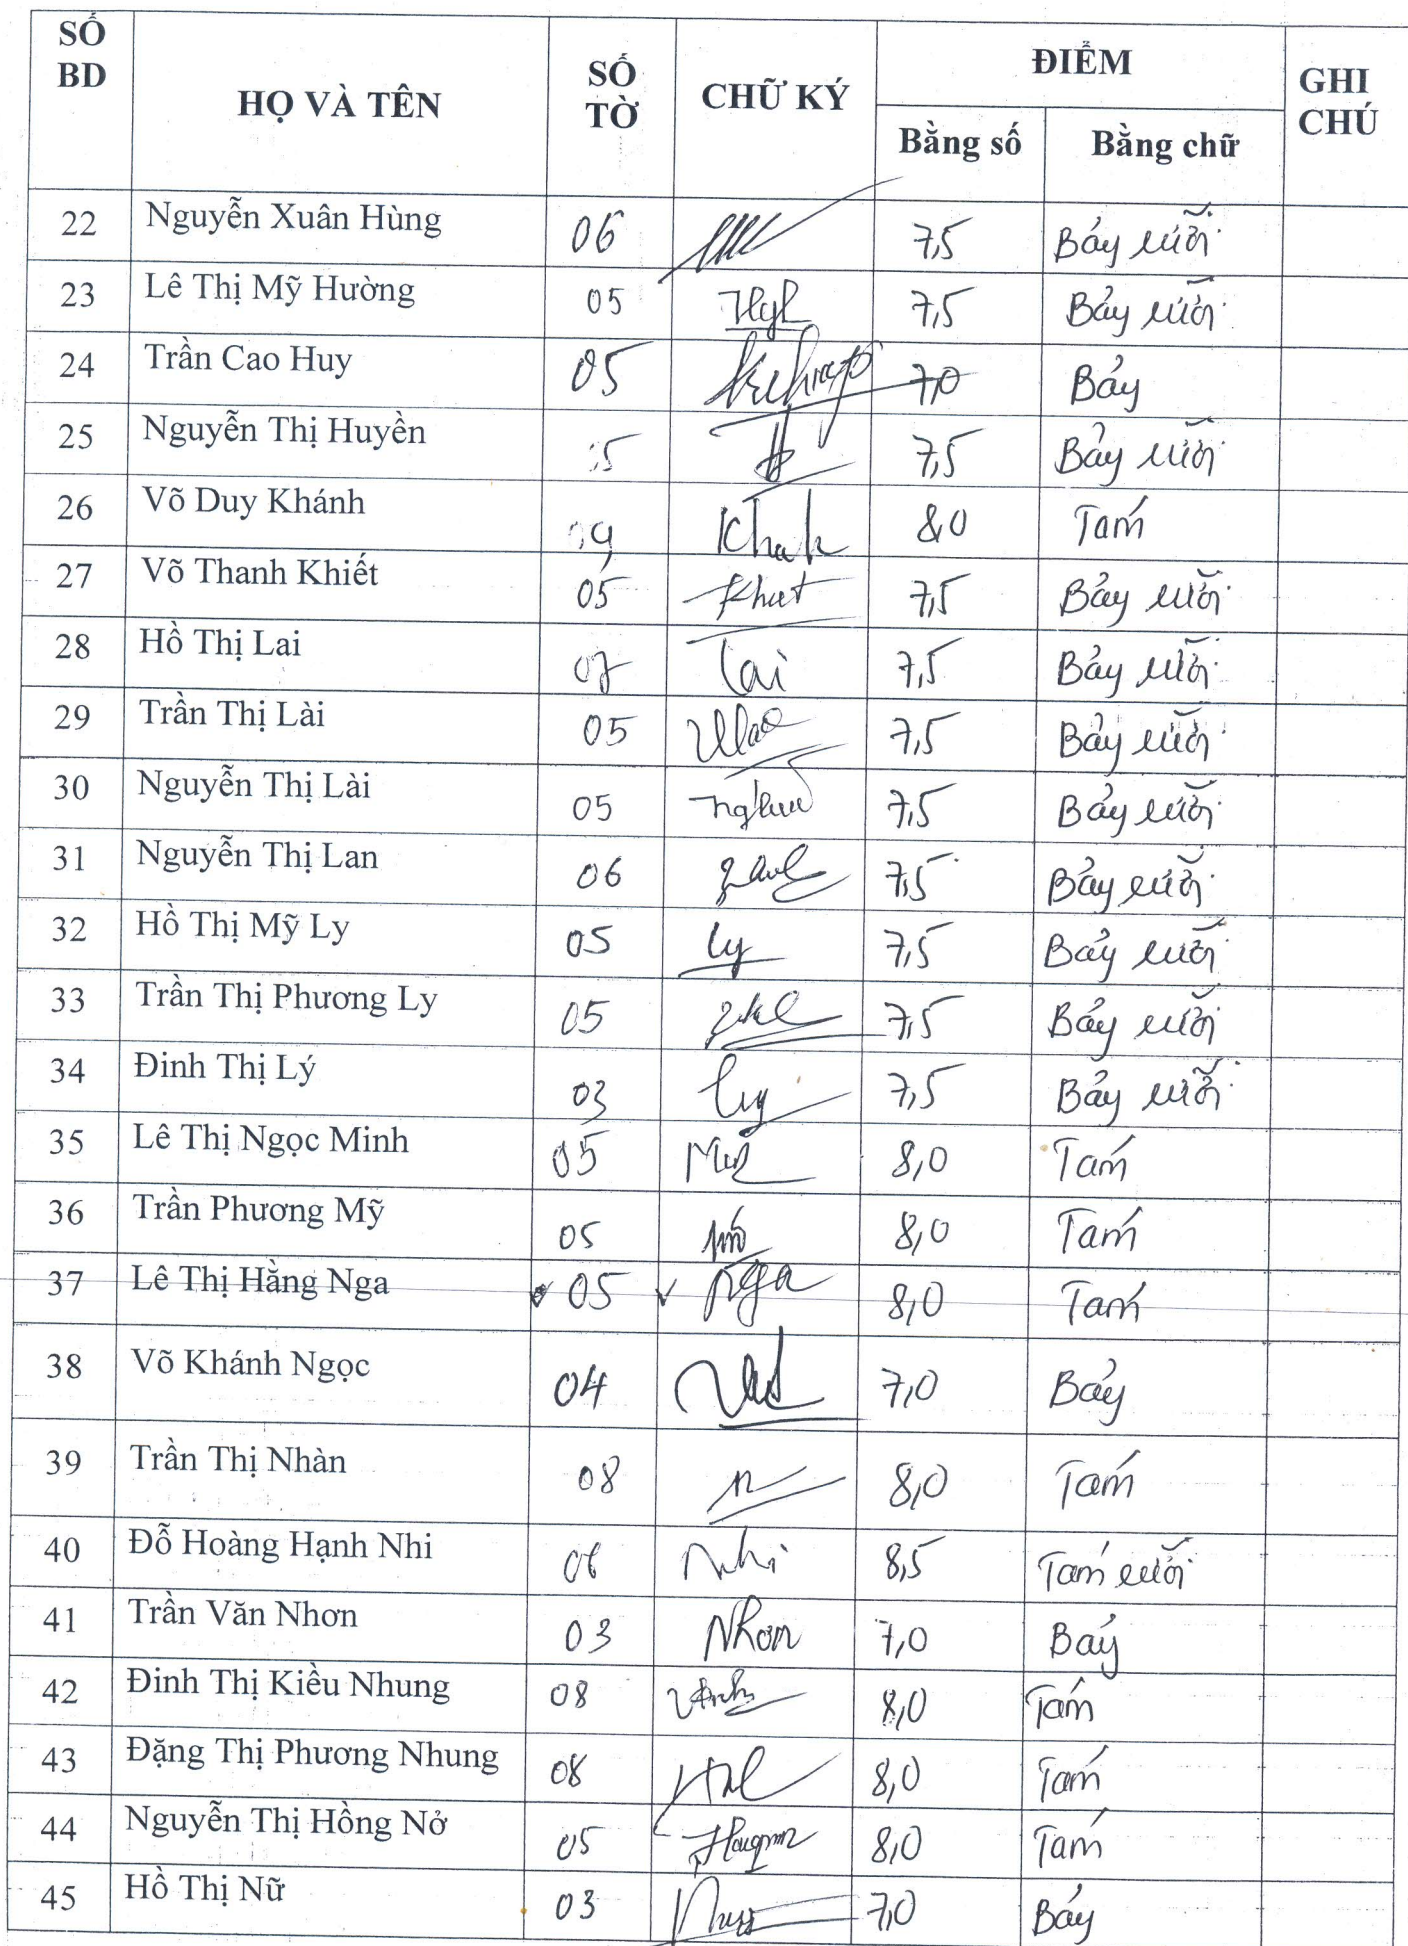 SỐ BD HỌ VÀ TÊN SỐ TỜ CHỮ KÝ ĐIỂM GHI CHÚ
Bằng số Bằng chữ
22 Nguyễn Xuân Hùng 06 7,5 Bảy rưỡi
23 Lê Thị Mỹ Hường 05 7,5 Bảy rưỡi
24 Trần Cao Huy 05 7,0 Bảy
25 Nguyễn Thị Huyền 7,5 Bảy rưỡi
26 Võ Duy Khánh Khah 8,0 Tám
27 Võ Thanh Khiết 05 7,5 Bảy rưỡi
28 Hồ Thị Lai 07 Lai 7,5 Bảy rưỡi
29 Trần Thị Lài 05 7,5 Bảy rưỡi
30 Nguyễn Thị Lài 05 7,5 Bảy rưỡi
31 Nguyễn Thị Lan 06 7,5 Bảy rưỡi
32 Hồ Thị Mỹ Ly 05 Ly 7,5 Bảy rưỡi
33 Trần Thị Phương Ly 05 7,5 Bảy rưỡi
34 Đinh Thị Lý 03 7,5 Bảy rưỡi
35 Lê Thị Ngọc Minh 05 8,0 Tám
36 Trần Phương Mỹ 05 8,0 Tám
37 Lê Thị Hằng Nga 05 Nga 8,0 Tám
38 Võ Khánh Ngọc 04 7,0 Bảy
39 Trần Thị Nhàn 08 8,0 Tám
40 Đỗ Hoàng Hạnh Nhi 06 Nhi 8,5 Tám rưỡi
41 Trần Văn Nhơn 03 Nhơn 7,0 Bảy
42 Đinh Thị Kiều Nhung 08 8,0 Tám
43 Đặng Thị Phương Nhung 08 8,0 Tám
44 Nguyễn Thị Hồng Nở 05 8,0 Tám
45 Hồ Thị Nữ 03 7,0 Bảy